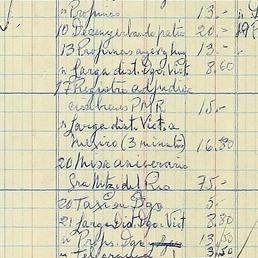 " Propinas 13.-
10 Desempeñando patio 20.-
13 Propinas ayer y hoy 13.-
" Larga dist. Dgo. Vict. 8.60
17 Registro adjudic
P.M.R. 15.-
" Larga dist. Vict. a
México (3 minutos) 16.80
20 Misa aniversario
Sra Mtz. del Rio 75.-
20 Taxi en Dgo 5.-
21 Larga Dist. Dgo. Vict 8.80
" Props. Dgo 13.50
" Telegrama 3.50